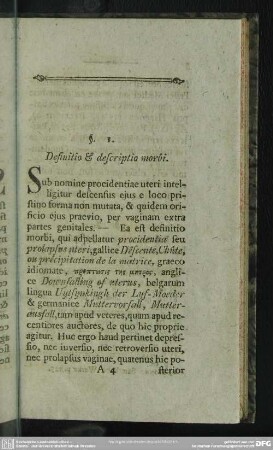 §. 1.
Definitio & descriptio morbi.
Sub nomine procidentiae uteri intel-
ligitur descensus ejus e loco pri-
stino forma non mutata, & quidem ori-
ficio ejus praevio, per vaginam extra
partes genitales. — Ea est definitio
morbi, qui adpellatur procidentia seu
prolapsus uteri, gallice Déscente, Chûte,
ou précipitation de la matrice, graeco
idiomate, της μητρος, angli-
ce Downfalling of uterus, belgarum
lingua der Lyf-Moeder
& germanice Muttervorfall, Mutter-
ausfall, tam apud veteres, quam apud re-
centiores auctores, de quo hic proprie
agitur. Huc ergo haud pertinet depres-
sio, nec inversio, nec retroversio uteri,
nec prolapsus vaginae, quatenus hic po-
A 4 sterior